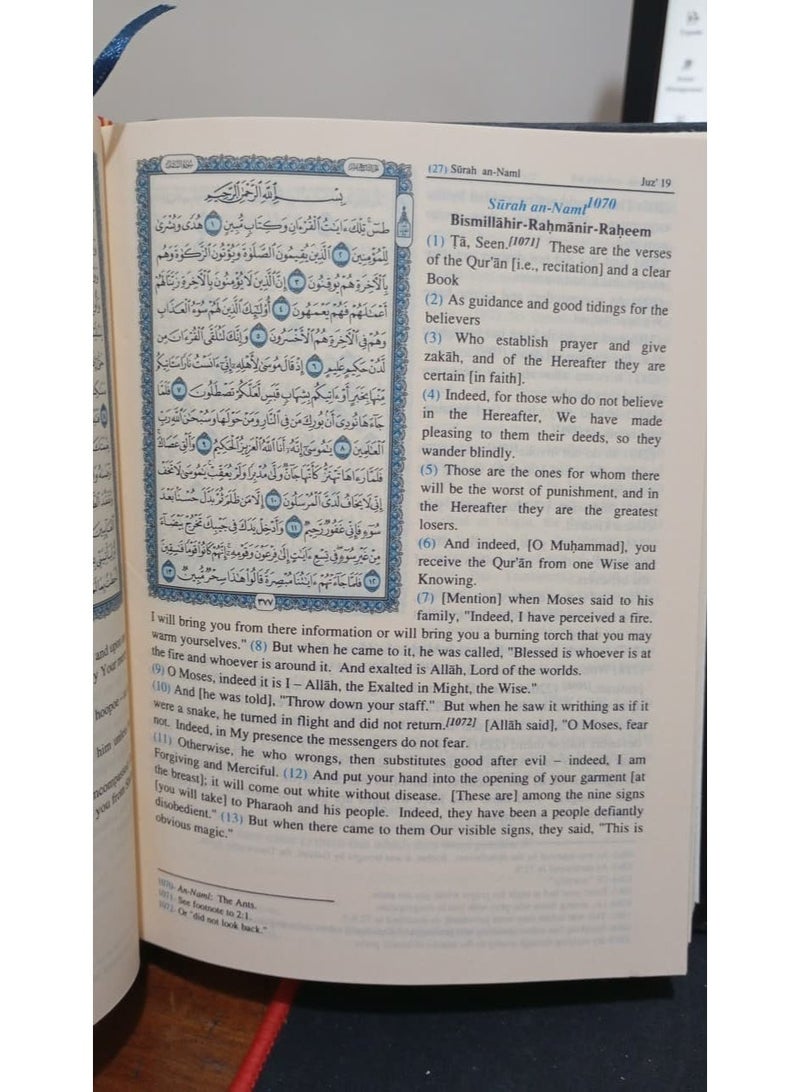 (27) Sūrah an-Naml
Juz' 19
بِسْمِ ٱللَّهِ ٱلرَّحْمَٰنِ ٱلرَّحِيمِ
طسٓ ۚ تِلْكَ ءَايَٰتُ ٱلْقُرْءَانِ وَكِتَابٍ مُّبِينٍ ١ هُدًى وَبُشْرَىٰ
لِلْمُؤْمِنِينَ ٢ ٱلَّذِينَ يُقِيمُونَ ٱلصَّلَوٰةَ وَيُؤْتُونَ ٱلزَّكَوٰةَ وَهُم
بِٱلْءَاخِرَةِ هُمْ يُوقِنُونَ ٣ إِنَّ ٱلَّذِينَ لَا يُؤْمِنُونَ بِٱلْءَاخِرَةِ زَيَّنَّا لَهُمْ
أَعْمَٰلَهُمْ فَهُمْ يَعْمَهُونَ ٤ أُو۟لَٰٓئِكَ ٱلَّذِينَ لَهُمْ سُوٓءُ ٱلْعَذَابِ
وَهُمْ فِى ٱلْءَاخِرَةِ هُمُ ٱلْأَخْسَرُونَ ٥ وَإِنَّكَ لَتُلَقَّى ٱلْقُرْءَانَ مِن
لَّدُنْ حَكِيمٍ عَلِيمٍ ٦ إِذْ قَالَ مُوسَىٰ لِأَهْلِهِۦٓ إِنِّىٓ ءَانَسْتُ نَارًا سَـَٔاتِيكُم
مِّنْهَا بِخَبَرٍ أَوْ ءَاتِيكُم بِشِهَابٍ قَبَسٍ لَّعَلَّكُمْ تَصْطَلُونَ ٧ فَلَمَّا
جَآءَهَا نُودِىَ أَنۢ بُورِكَ مَن فِى ٱلنَّارِ وَمَنْ حَوْلَهَا وَسُبْحَٰنَ ٱللَّهِ رَبِّ
ٱلْعَٰلَمِينَ ٨ يَٰمُوسَىٰٓ إِنَّهُۥٓ أَنَا ٱللَّهُ ٱلْعَزِيزُ ٱلْحَكِيمُ ٩ وَأَلْقِ عَصَاكَ ۚ
فَلَمَّا رَءَاهَا تَهْتَزُّ كَأَنَّهَا جَآنٌّ وَلَّىٰ مُدْبِرًا وَلَمْ يُعَقِّبْ ۚ يَٰمُوسَىٰ لَا تَخَفْ
إِنِّى لَا يَخَافُ لَدَىَّ ٱلْمُرْسَلُونَ ١٠ إِلَّا مَن ظَلَمَ ثُمَّ بَدَّلَ حُسْنًۢا بَعْدَ
سُوٓءٍ فَإِنِّى غَفُورٌ رَّحِيمٌ ١١ وَأَدْخِلْ يَدَكَ فِى جَيْبِكَ تَخْرُجْ بَيْضَآءَ
مِنْ غَيْرِ سُوٓءٍ ۖ فِى تِسْعِ ءَايَٰتٍ إِلَىٰ فِرْعَوْنَ وَقَوْمِهِۦٓ ۚ إِنَّهُمْ كَانُوا۟ قَوْمًا فَٰسِقِينَ
١٢ فَلَمَّا جَآءَتْهُمْ ءَايَٰتُنَا مُبْصِرَةً قَالُوا۟ هَٰذَا سِحْرٌ مُّبِينٌ ١٣
٣٧٧
Sūrah an-Naml1070
Bismillāhir-Raḥmānir-Raḥeem
(1) Ṭā, Seen.[1071] These are the verses
of the Qur'ān [i.e., recitation] and a clear
Book
(2) As guidance and good tidings for the
believers
(3) Who establish prayer and give
zakāh, and of the Hereafter they are
certain [in faith].
(4) Indeed, for those who do not believe
in the Hereafter, We have made
pleasing to them their deeds, so they
wander blindly.
(5) Those are the ones for whom there
will be the worst of punishment, and in
the Hereafter they are the greatest
losers.
(6) And indeed, [O Muḥammad], you
receive the Qur'ān from one Wise and
Knowing.
(7) [Mention] when Moses said to his
family, "Indeed, I have perceived a fire.
I will bring you from there information or will bring you a burning torch that you may
warm yourselves." (8) But when he came to it, he was called, "Blessed is whoever is at
the fire and whoever is around it. And exalted is Allāh, Lord of the worlds.
(9) O Moses, indeed it is I – Allāh, the Exalted in Might, the Wise."
(10) And [he was told], "Throw down your staff." But when he saw it writhing as if it
were a snake, he turned in flight and did not return.[1072] [Allāh said], "O Moses, fear
not. Indeed, in My presence the messengers do not fear.
(11) Otherwise, he who wrongs, then substitutes good after evil – indeed, I am
Forgiving and Merciful. (12) And put your hand into the opening of your garment [at
the breast]; it will come out white without disease. [These are] among the nine signs
[you will take] to Pharaoh and his people. Indeed, they have been a people defiantly
disobedient." (13) But when there came to them Our visible signs, they said, "This is
obvious magic."
1070- An-Naml: The Ants.
1071- See footnote to 2:1.
1072- Or "did not look back."